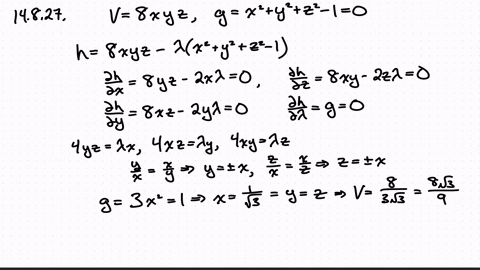 14.8.27. V = 8xyz, g = x²+y²+z²-1=0
h = 8xyz - λ(x²+y²+z²-1)
∂h/∂x = 8yz - 2xλ = 0, ∂h/∂z = 8xy - 2zλ = 0
∂h/∂y = 8xz - 2yλ = 0 ∂h/∂λ = g = 0
4yz = λx, 4xz = λy, 4xy = λz
y/x = x/y ⇒ y = ±x, z/x = x/z ⇒ z = ±x
g = 3x² = 1 ⇒ x = 1/√3 = y = z ⇒ V = 8/(3√3) = 8√3/9